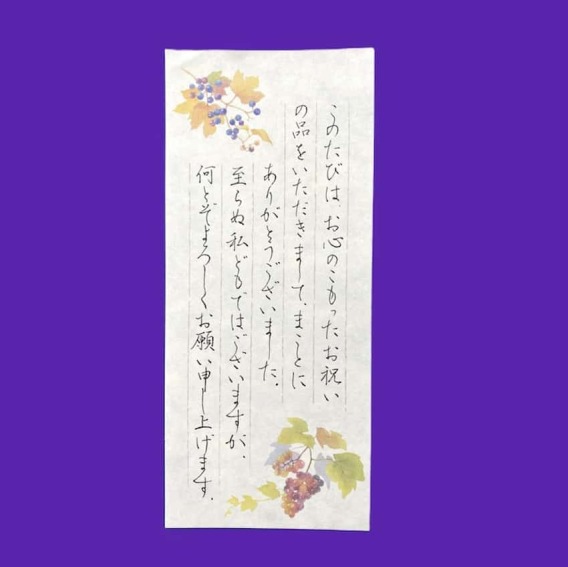 このたびは、お心のこもったお祝い
の品をいただきまして、まことに
ありがとうございました。
至らぬ私どもではございますが、
何とぞよろしくお願い申し上げます。